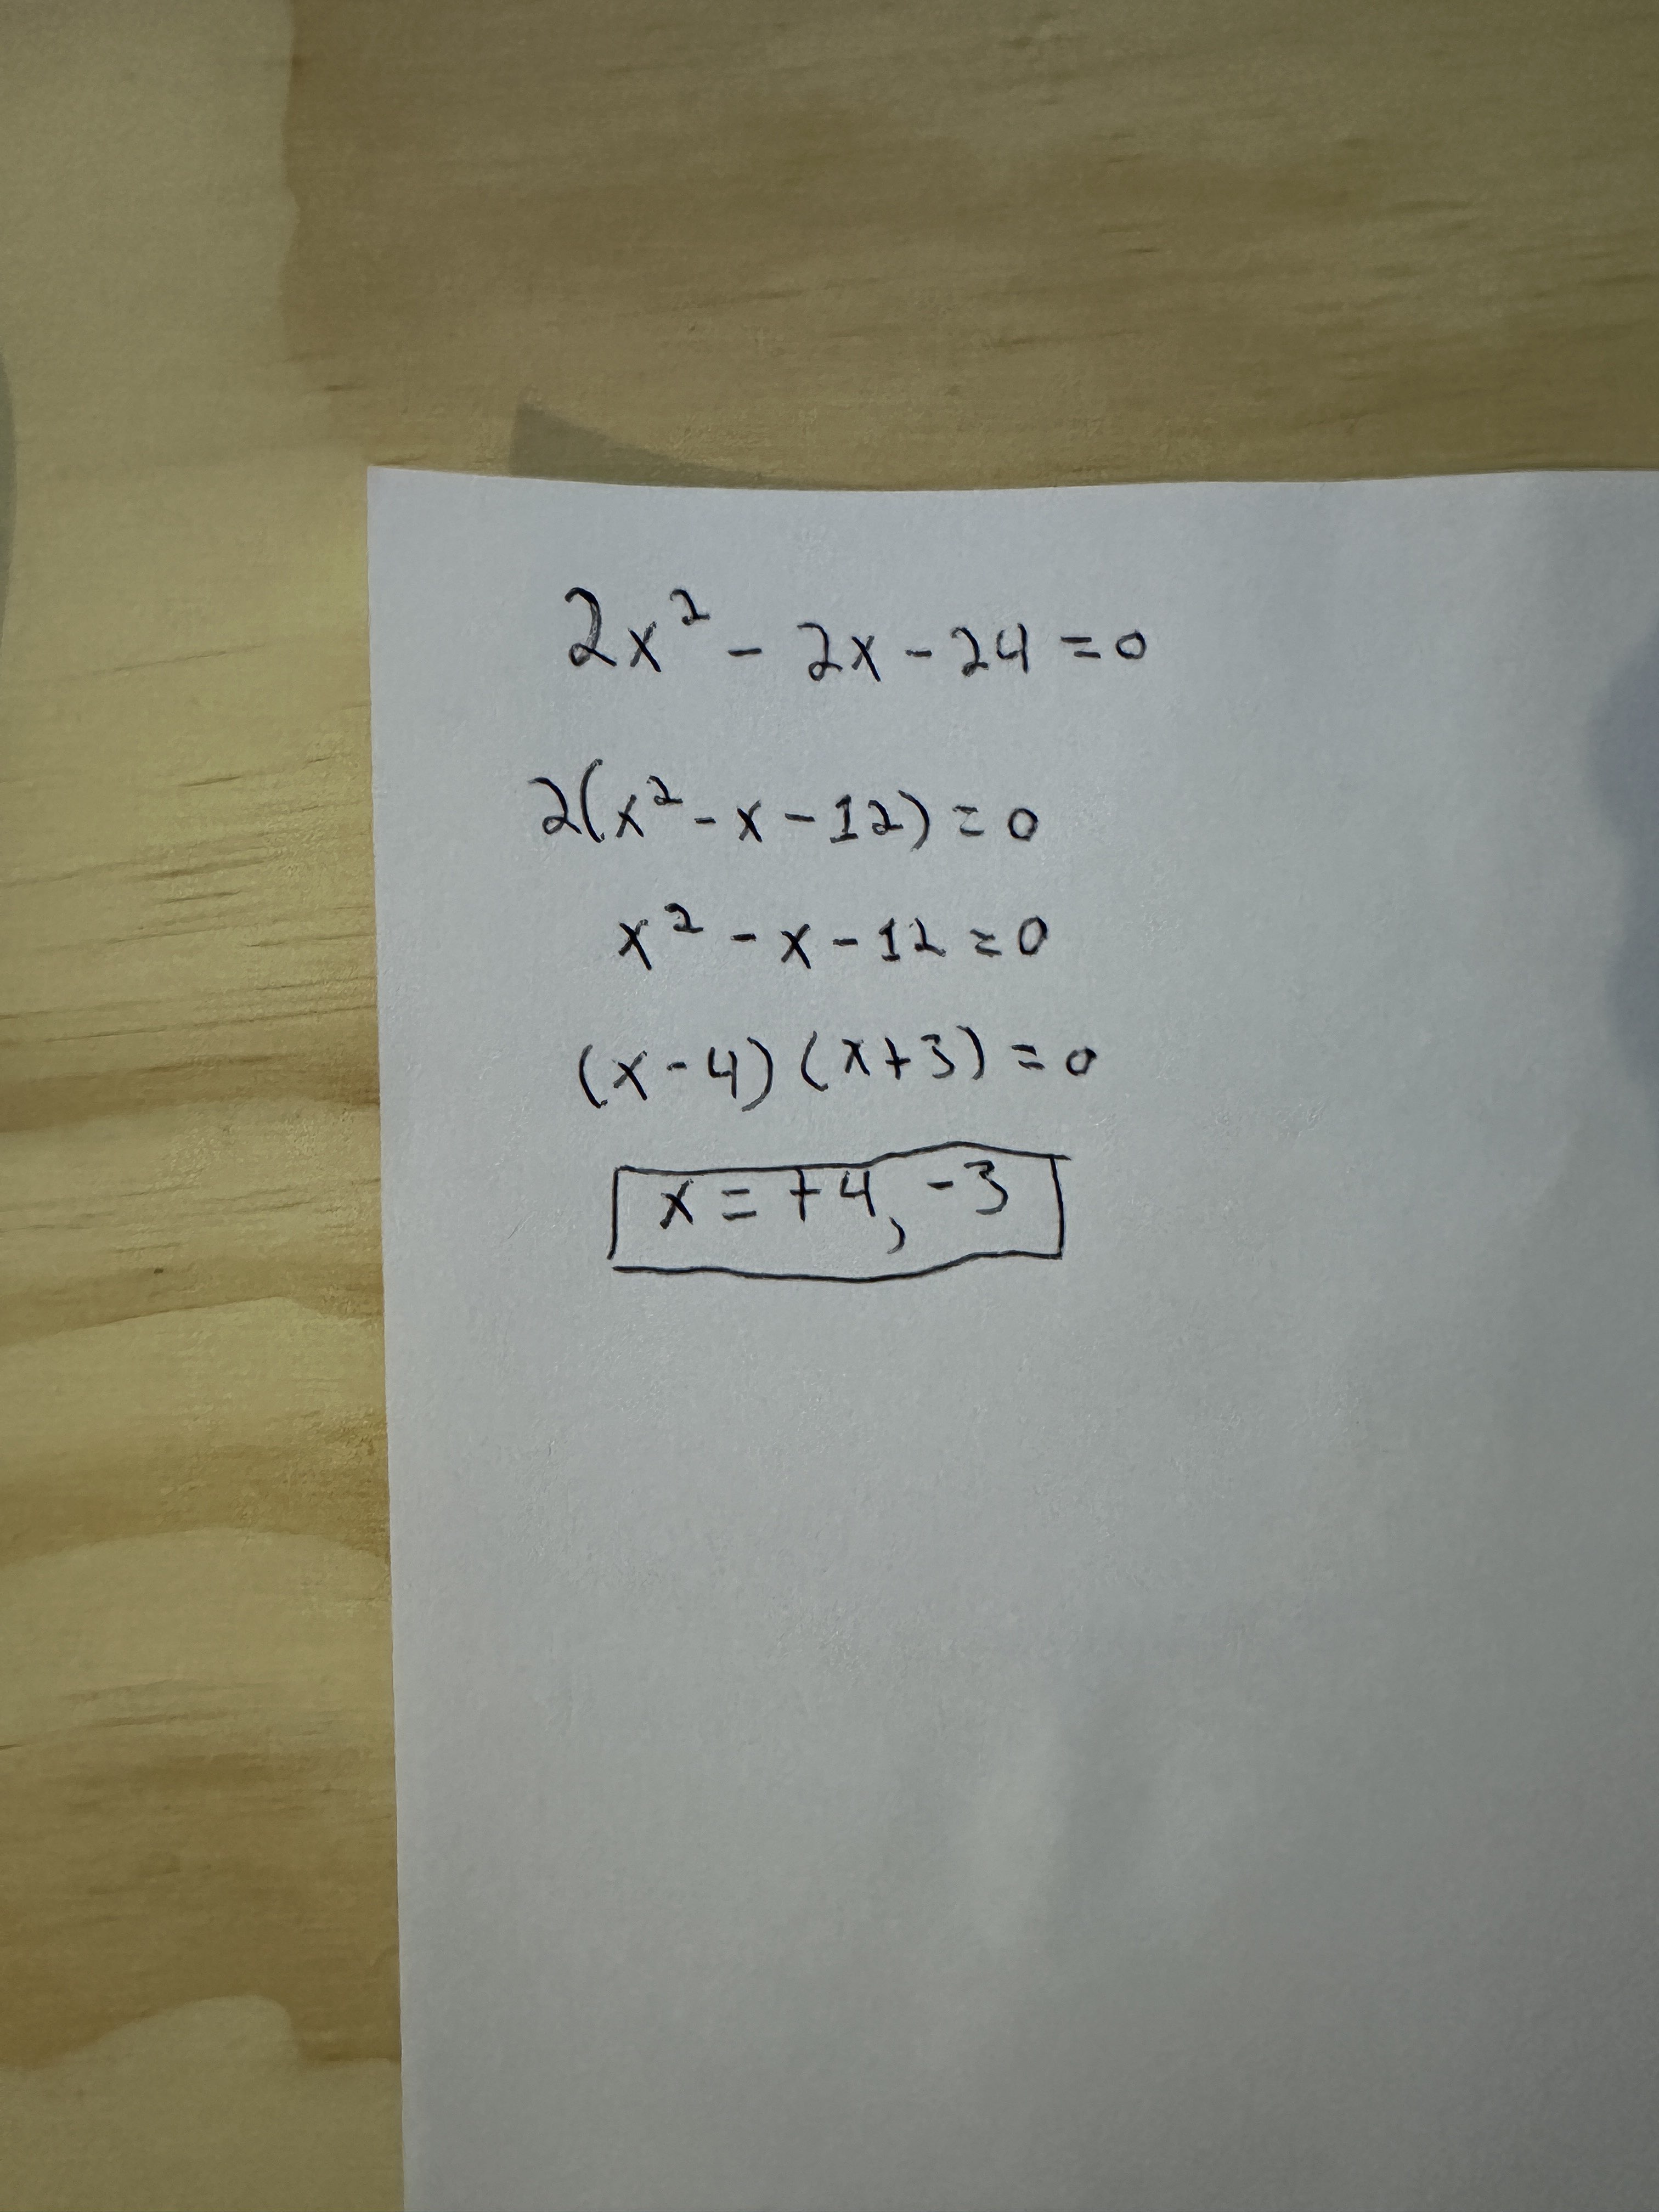 2x² - 2x - 24 = 0
2(x² - x - 12) = 0
x² - x - 12 = 0
(x - 4) (x + 3) = 0
x = +4, -3